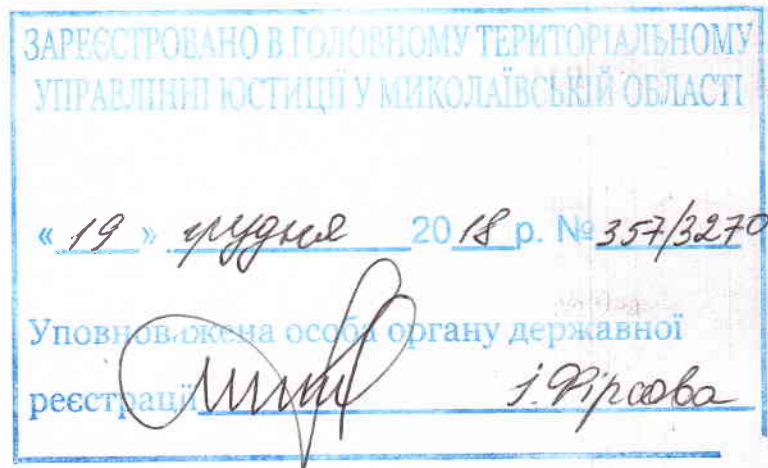 ЗАРЕЄСТРОВАНО В ГОЛОВНОМУ ТЕРИТОРІАЛЬНОМУ
УПРАВЛІННІ ЮСТИЦІЇ У МИКОЛАЇВСЬКІЙ ОБЛАСТІ
« 19 » грудня 2018 р. № 357/3270
Уповноважена особа органу державної
реєстрації І. Фірсова